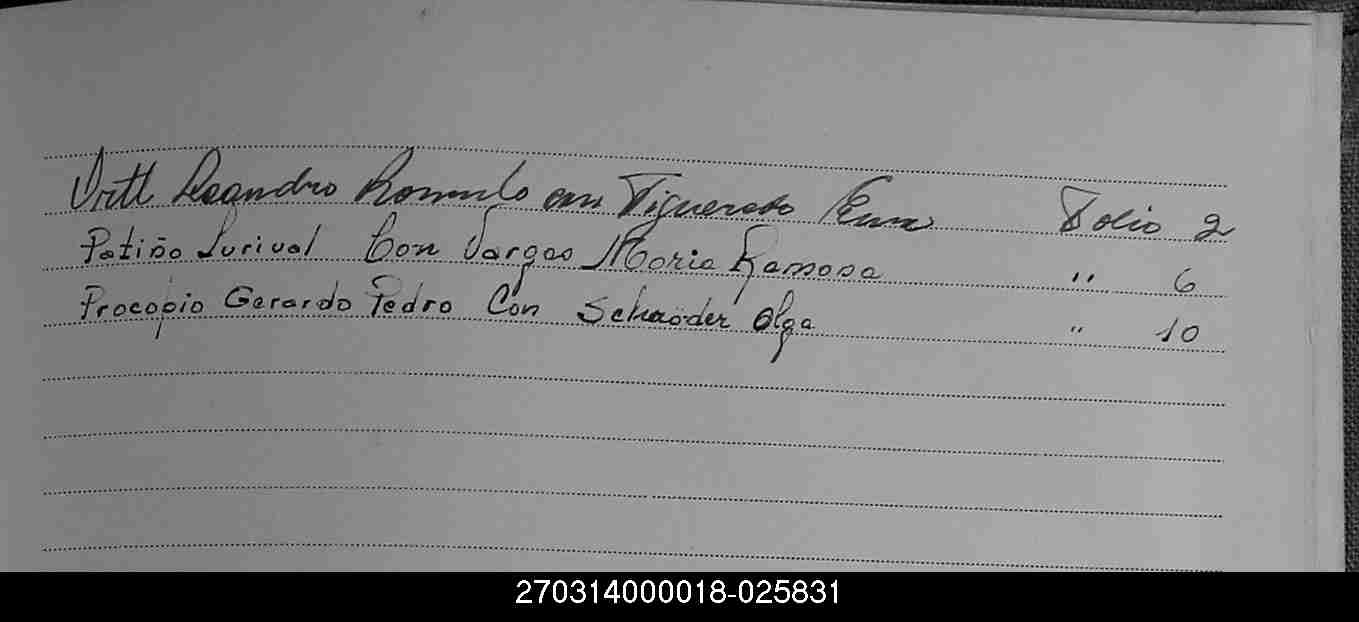 Ortt Leandro Romulo con Figueredo Ema Folio 2
Patiño Lurival Con Vargas Maria Ramona " 6
Procopio Gerardo Pedro Con Schaöder Olga " 10
270314000018-025831